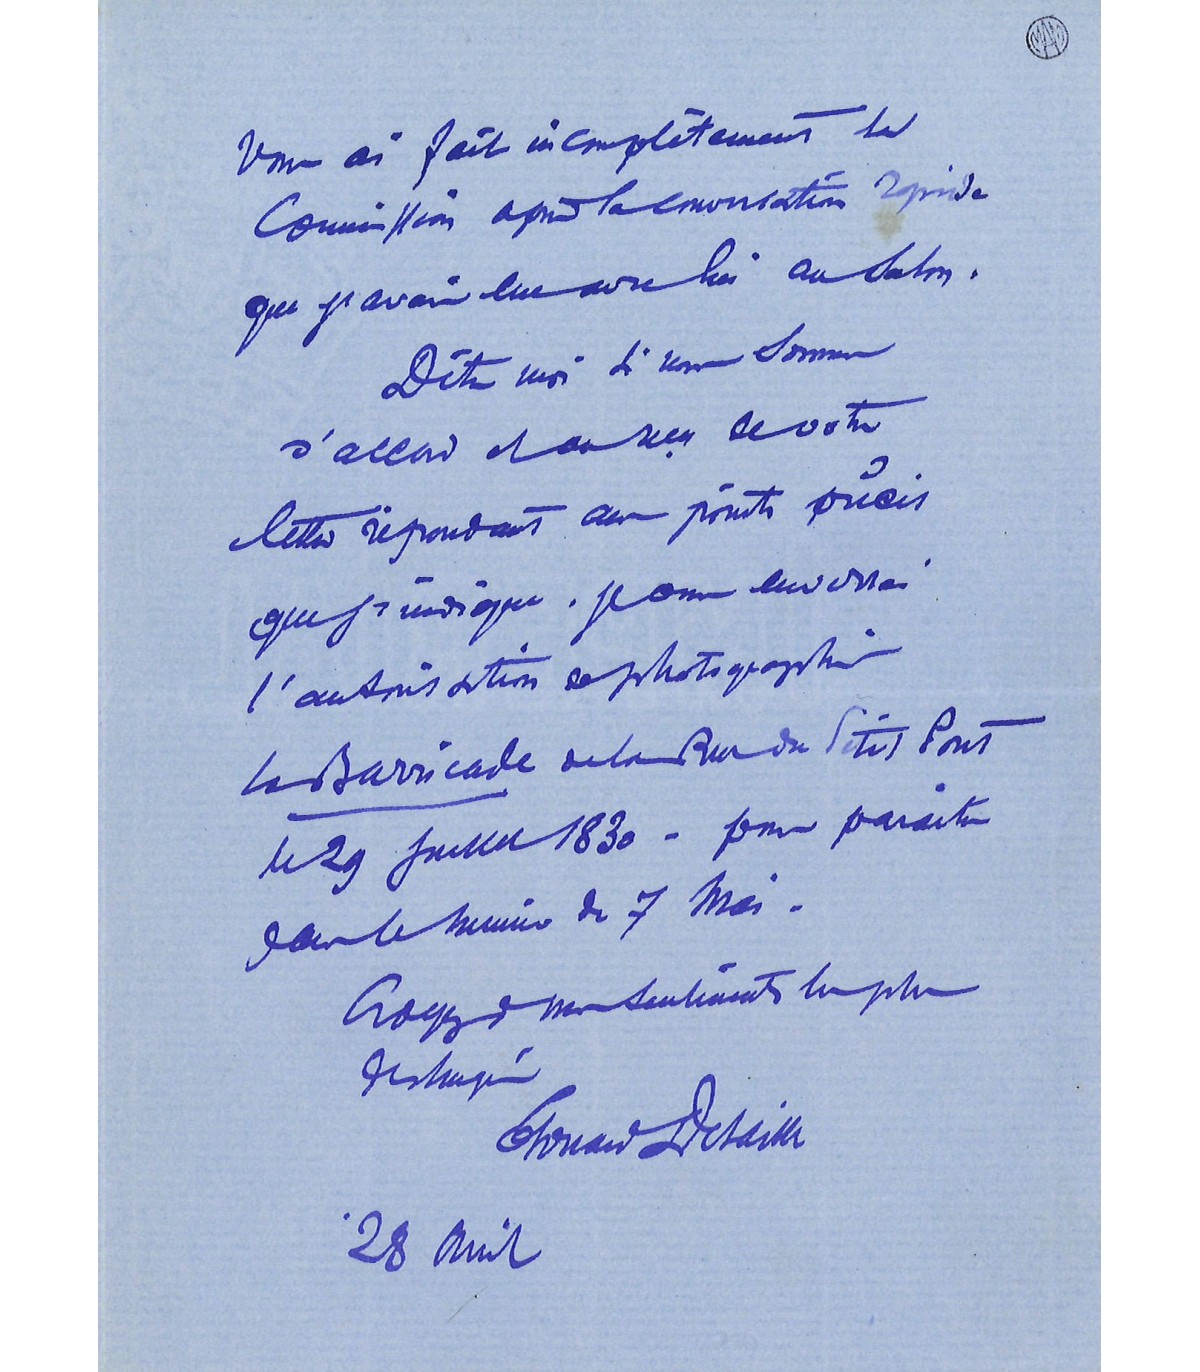 vous ai fait incomplètement la
Commission après la conversation rapide
que j'avais eue avec lui au Salon.
Dites moi si nous sommes
d'accord et au reçu de votre
lettre répondant aux points précis
que j'indique. je vous enverrai
l'autorisation de photographier
la Barricade de la Rue du Petit Pont
le 29 Juillet 1830 - pour paraître
dans le numéro du 7 Mai -
Croyez à mes sentiments les plus
distingués
Edouard Detaille
28 Avril